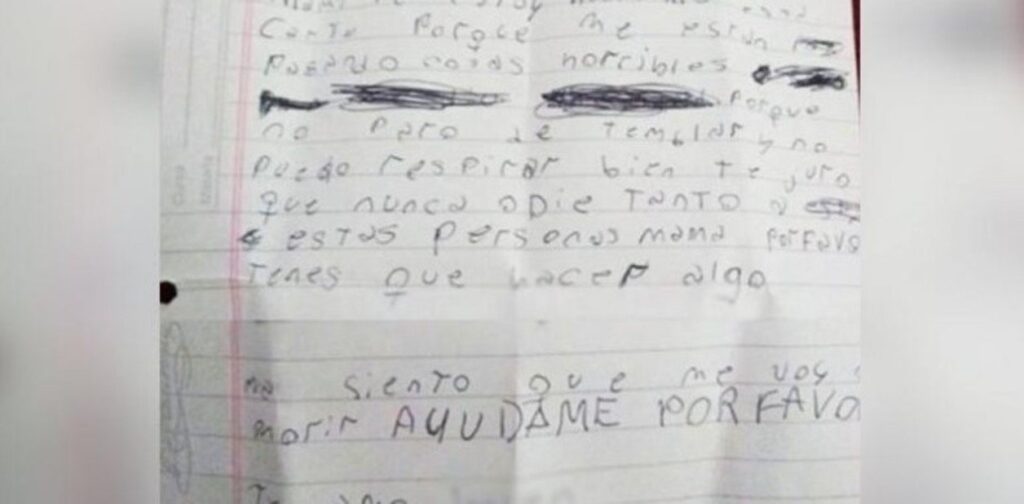 Carta Porqe me están
Pasando cosas horribles
Porque
no Paro de Temblar y no
Puedo respirar bien Te juro
Que nunca odie TANTO a
estas personas mama PorFavo
Tenes que hacer algo
siento que me voy
morir AYUDAME POR FAVO